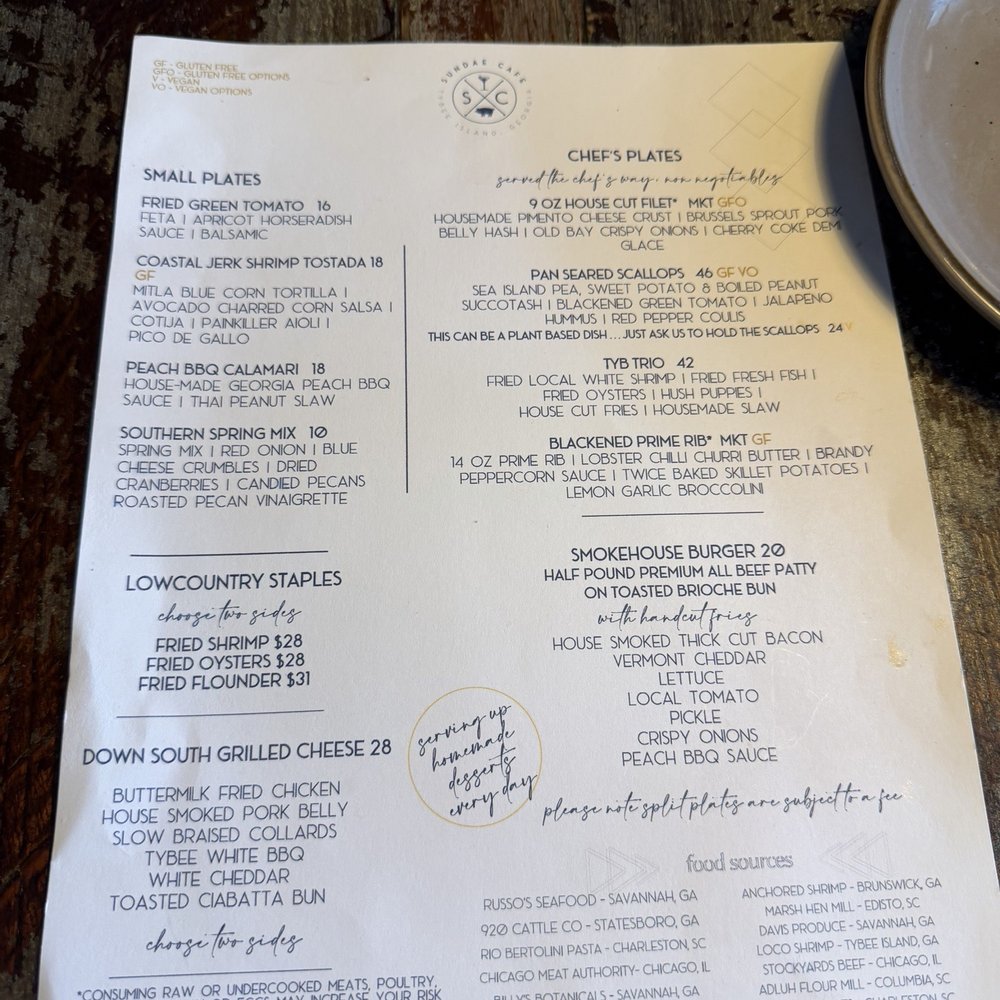 GF - GLUTEN FREE
GFO - GLUTEN FREE OPTIONS
V - VEGAN
VO - VEGAN OPTIONS
SUNDAE CAFE
S T C
TYBEE ISLAND, GEORGIA
SMALL PLATES
FRIED GREEN TOMATO 16
FETA | APRICOT HORSERADISH
SAUCE | BALSAMIC
COASTAL JERK SHRIMP TOSTADA 18
GF
MITLA BLUE CORN TORTILLA |
AVOCADO CHARRED CORN SALSA |
COTIJA | PAINKILLER AIOLI |
PICO DE GALLO
PEACH BBQ CALAMARI 18
HOUSE-MADE GEORGIA PEACH BBQ
SAUCE | THAI PEANUT SLAW
SOUTHERN SPRING MIX 10
SPRING MIX | RED ONION | BLUE
CHEESE CRUMBLES | DRIED
CRANBERRIES | CANDIED PECANS
ROASTED PECAN VINAIGRETTE
LOWCOUNTRY STAPLES
choose two sides
FRIED SHRIMP $28
FRIED OYSTERS $28
FRIED FLOUNDER $31
DOWN SOUTH GRILLED CHEESE 28
BUTTERMILK FRIED CHICKEN
HOUSE SMOKED PORK BELLY
SLOW BRAISED COLLARDS
TYBEE WHITE BBQ
WHITE CHEDDAR
TOASTED CIABATTA BUN
choose two sides
*CONSUMING RAW OR UNDERCOOKED MEATS, POULTRY,
EGGS MAY INCREASE YOUR RISK
CHEF'S PLATES
served the chef's way. non negotiables
9 OZ HOUSE CUT FILET* MKT GFO
HOUSEMADE PIMENTO CHEESE CRUST | BRUSSELS SPROUT PORK
BELLY HASH | OLD BAY CRISPY ONIONS | CHERRY COKE DEMI
GLACE
PAN SEARED SCALLOPS 46 GF VO
SEA ISLAND PEA, SWEET POTATO & BOILED PEANUT
SUCCOTASH | BLACKENED GREEN TOMATO | JALAPENO
HUMMUS | RED PEPPER COULIS
THIS CAN BE A PLANT BASED DISH . . . JUST ASK US TO HOLD THE SCALLOPS 24 V
TYB TRIO 42
FRIED LOCAL WHITE SHRIMP | FRIED FRESH FISH |
FRIED OYSTERS | HUSH PUPPIES |
HOUSE CUT FRIES | HOUSEMADE SLAW
BLACKENED PRIME RIB* MKT GF
14 OZ PRIME RIB | LOBSTER CHILLI CHURRI BUTTER | BRANDY
PEPPERCORN SAUCE | TWICE BAKED SKILLET POTATOES |
LEMON GARLIC BROCCOLINI
SMOKEHOUSE BURGER 20
HALF POUND PREMIUM ALL BEEF PATTY
ON TOASTED BRIOCHE BUN
with handcut fries
HOUSE SMOKED THICK CUT BACON
VERMONT CHEDDAR
LETTUCE
LOCAL TOMATO
PICKLE
CRISPY ONIONS
PEACH BBQ SAUCE
serving up
homemade
desserts
every day
please note split plates are subject to a fee
food sources
RUSSO'S SEAFOOD - SAVANNAH, GA
920 CATTLE CO - STATESBORO, GA
RIO BERTOLINI PASTA - CHARLESTON, SC
CHICAGO MEAT AUTHORITY- CHICAGO, IL
BILLY'S BOTANICALS - SAVANNAH, GA
ANCHORED SHRIMP - BRUNSWICK, GA
MARSH HEN MILL - EDISTO, SC
DAVIS PRODUCE - SAVANNAH, GA
LOCO SHRIMP - TYBEE ISLAND, GA
STOCKYARDS BEEF - CHICAGO, IL
ADLUH FLOUR MILL - COLUMBIA, SC